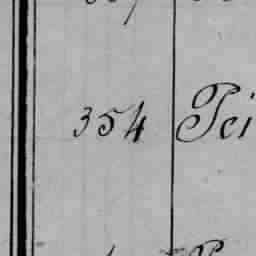 354 Pei